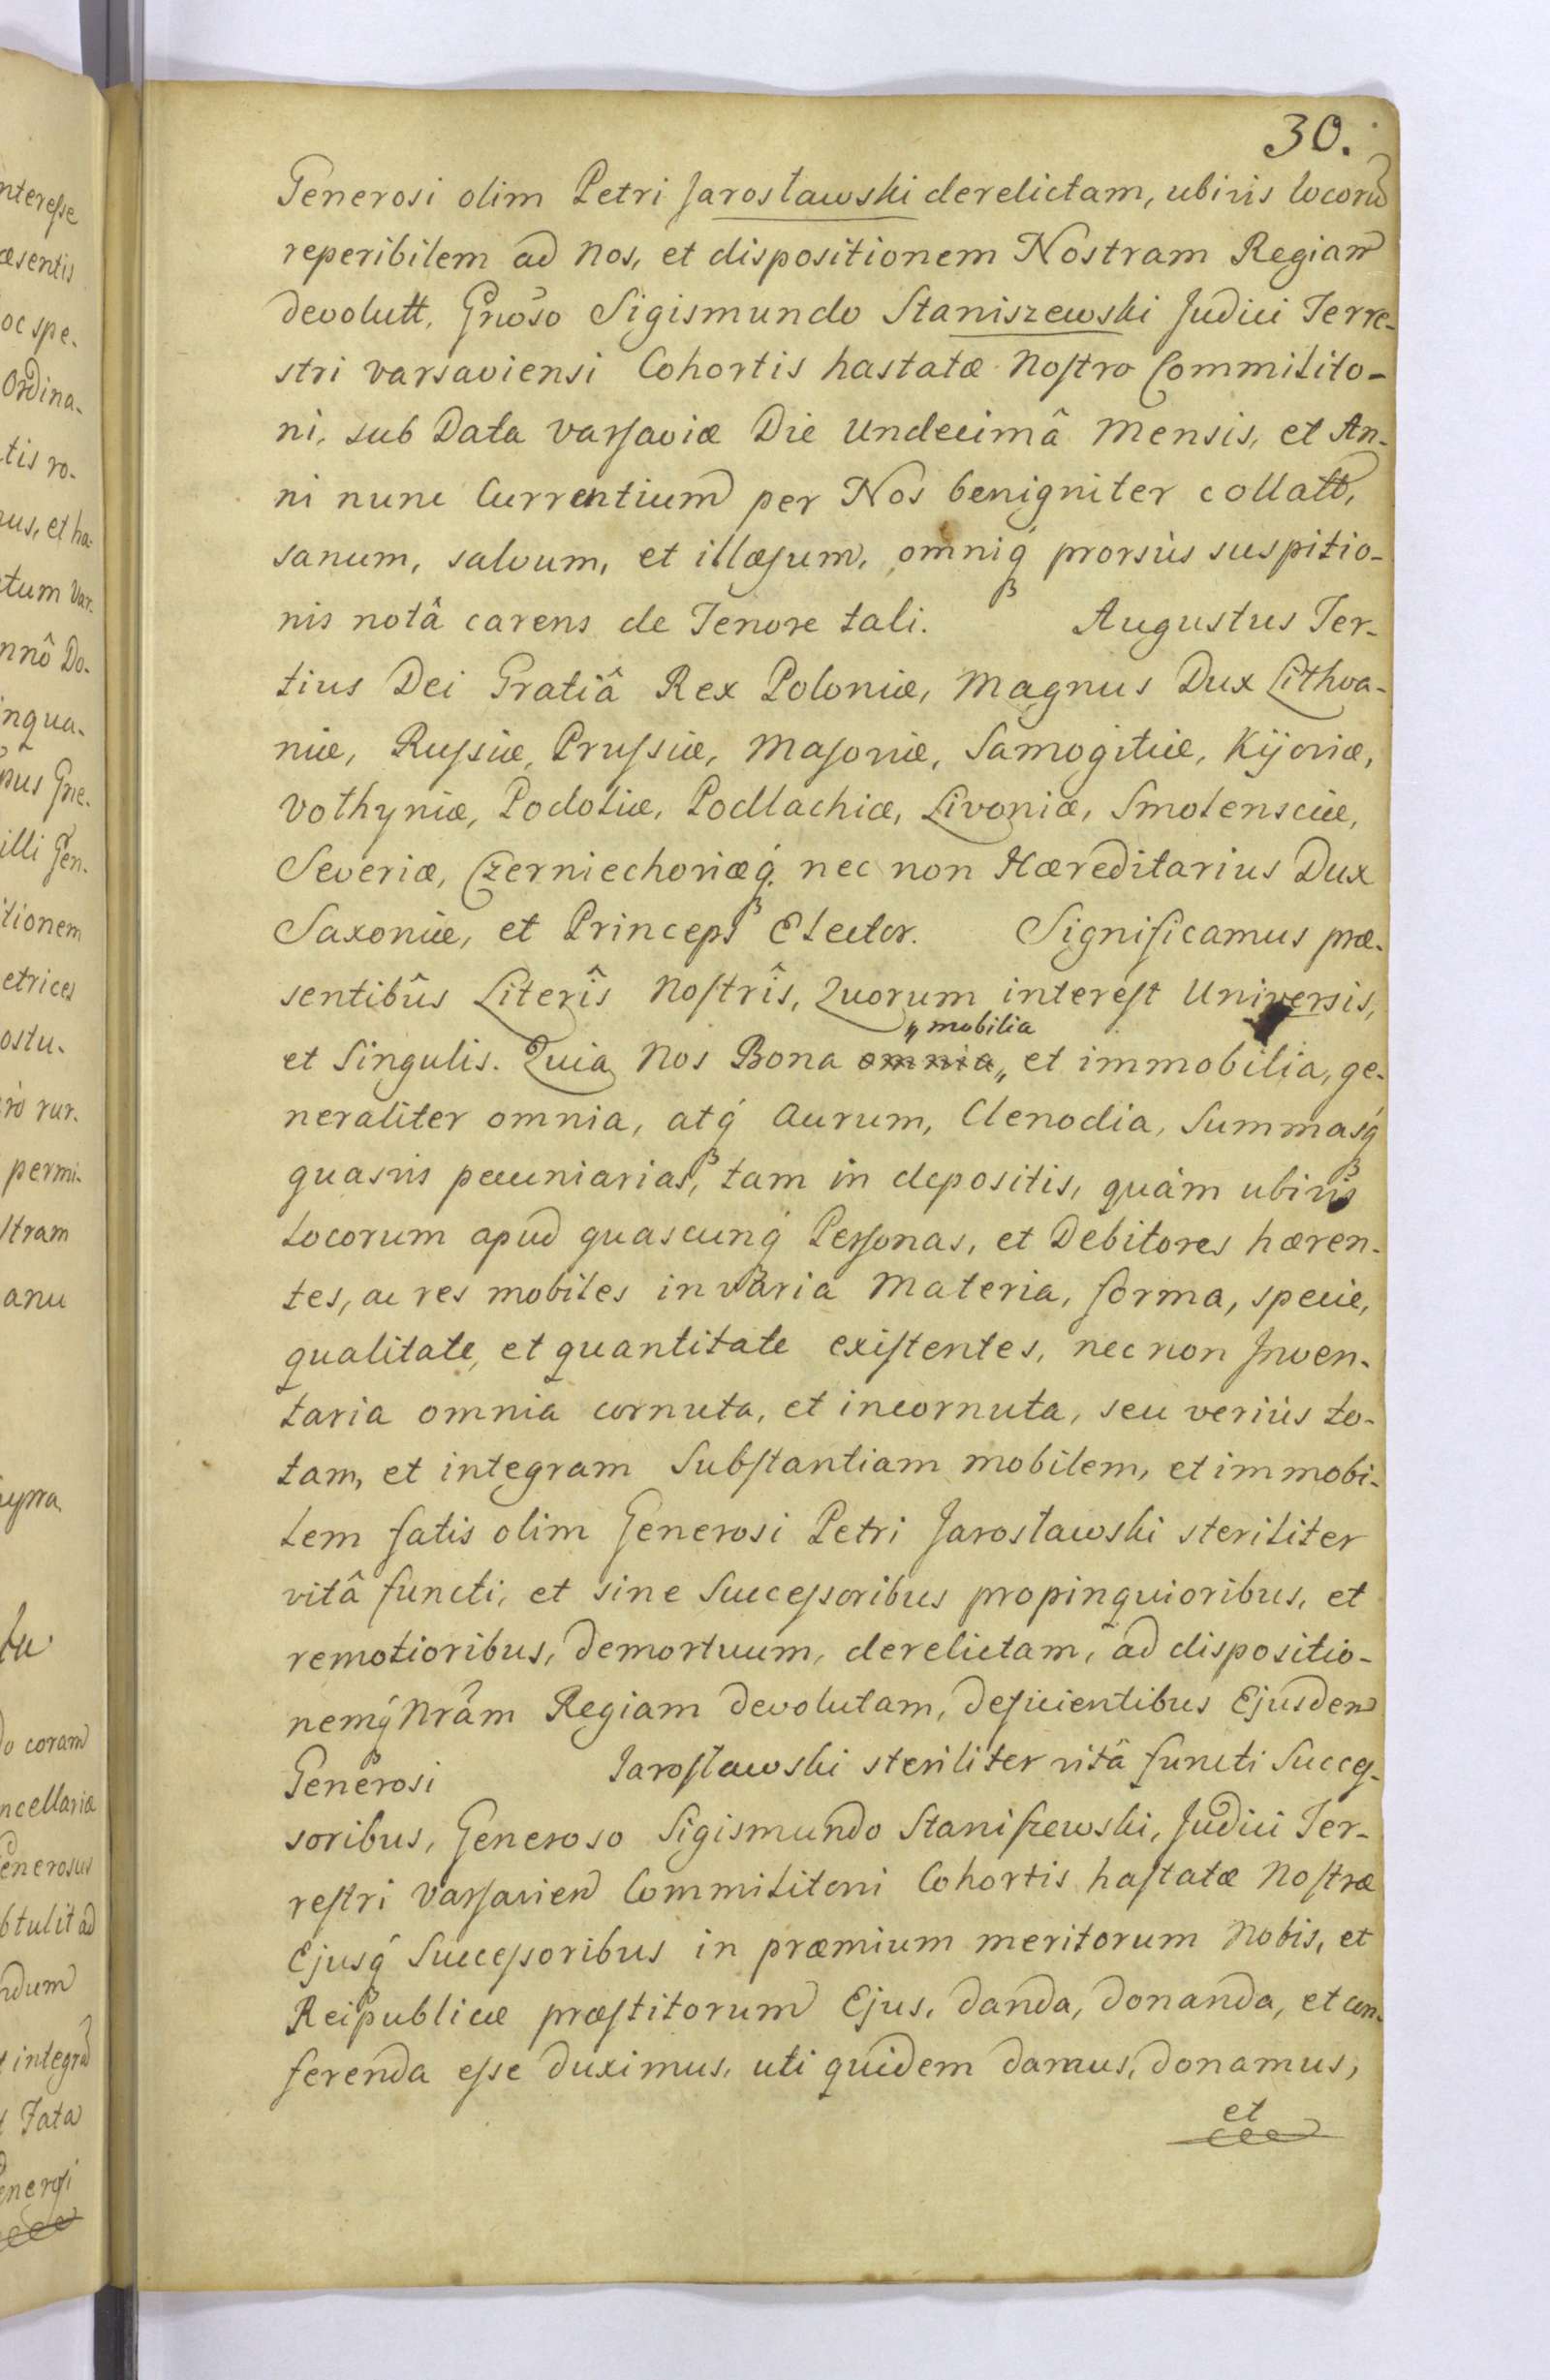 30.
Generosi olim Petri Jarosławski derelictam, ubivis locorũ
reperibilem ad Nos, et dispositionem Nostram Regiam
devolutt, Gnoso Sigismundo Staniszewski Judici Terre-
stri Varsaviensi Cohortis hastatæ Nostro Commilito-
ni, sub Data Varsaviæ Die Undecimâ Mensis, et An-
ni nunc Currentium per Nos benigniter collatt,
sanum, salvum, et illæsum, omniq́ prorsùs suspitio-
nis notâ carens de Tenore tali. Augustus Ter-
tius Dei Gratiâ Rex Poloniæ, Magnus Dux Lithva-
niæ, Russiæ, Prussiæ, Masoviæ, Samogitiæ, Kijoviæ,
Volhyniæ, Podoliæ, Podlachiæ, Livoniæ, Smolensciæ,
Severiæ, Czerniechoviæq́. nec non Hæreditarius Dux
Saxoniæ, et Princeps Elector. Significamus præ-
sentibûs Literîs Nostrîs, Quorum interest Universis,
et Singulis. Quia Nos Bona omnia „ mobilia „ et immobilia, ge-
neraliter omnia, atq́ Aurum, Clenodia, Summasq́
quasvis pecuniarias, tam in depositis, quàm ubivis
Locorum apud quascunq́ Personas, et Debitores hæren-
tes, ac res mobiles in varia Materia, forma, specie,
qualitate, et quantitate existentes, nec non Inven-
taria omnia cornuta, et incornuta, seu veriùs to-
tam, et integram Substantiam mobilem, et immobi-
lem fatis olim Generosi Petri Jarosławski steriliter
vitâ functi, et sine Successoribus propinquioribus, et
remotioribus, demortuum, derelictam, ad dispositio-
nemq́ Nrãm Regiam devolutam, deficientibus Ejusdem
Generosi Jarosławski steriliter vitâ functi Succes-
soribus, Generoso Sigismundo Staniszewski, Judici Ter-
restri Varsavien Commilitoni Cohortis hastatæ Nostræ
Ejusq́ Successoribus in præmium meritorum Nobis, et
Reipublicæ præstitorum Ejus, danda, donanda, et con-
ferenda esse duximus, uti quidem damus, donamus,
et